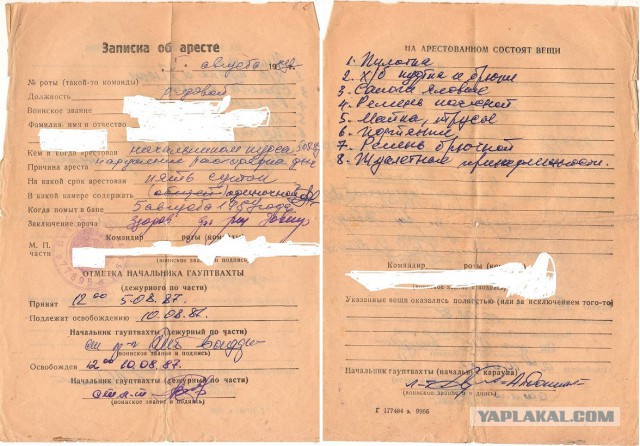 Записка об аресте
августа 1987 г.
№ роты (такой-то команды)
Должность рядовой
Воинское звание
Фамилия, имя и отчество
Кем и когда арестован начальником курса 5.08.87
Причина ареста нарушение распорядка дня
На какой срок арестован пять суток
В какой камере содержать общей, одиночной
Когда помыт в бане 5 августа 1987 года
Заключение врача Здоров
М. П. Командир роты
части (воинское звание и подпись)
ОТМЕТКА НАЧАЛЬНИКА ГАУПТВАХТЫ
(дежурного по части)
Принят 12 00 5.08.87.
Подлежит освобождению 10.08.87.
Начальник гауптвахты (дежурный по части)
(воинское звание и подпись)
Освобожден 12 00 10.08.87.
Начальник гауптвахты (дежурный по части)
(воинское звание и подпись)
НА АРЕСТОВАННОМ СОСТОЯТ ВЕЩИ
1. Пилотка
2. Х/б куртка и брюки
3. Сапоги яловые
4. Ремень поясной
5. Майка, трусы
6. Портянки
7. Ремень брючной
8. Туалетные принадлежности.
Командир роты
(воинское звание и подпись)
Указанные вещи оказались полностью (или за исключением того-то)
Начальник гауптвахты (начальник караула)
л-т
(воинское звание и подпись)
Г 177484 з. 9966
YAPLAKAL.COM